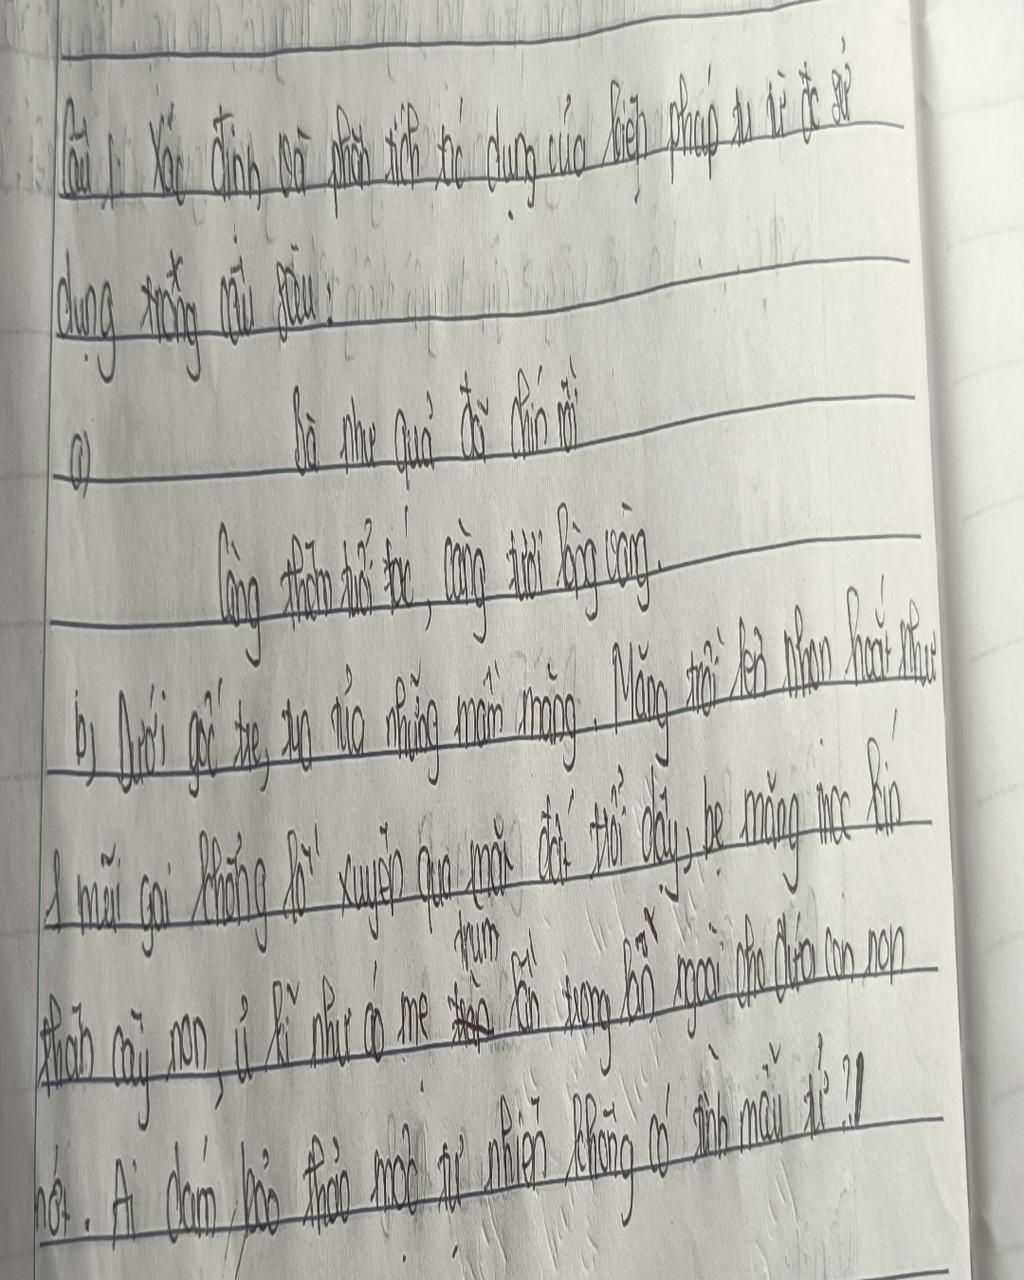 Câu 1: Xác định và phân tích tác dụng của biện pháp tu từ đc sử
dụng trong câu sau:
a) Bà như quả đã chín rồi
Càng thêm tuổi tác, càng tươi lòng vàng.
b) Dưới gốc tre, tua tủa những mầm măng. Măng trồi lên nhọn hoắt như
1 mũi gai khổng lồ xuyên qua mặt đất trỗi dậy, bẹ măng mọc kín
thân cây non, ủ kĩ như áo mẹ trùm lần trong lần ngoài cho đứa con non
nớt. Ai dám bảo thảo mộc tự nhiên không có tình mẫu tử ?!